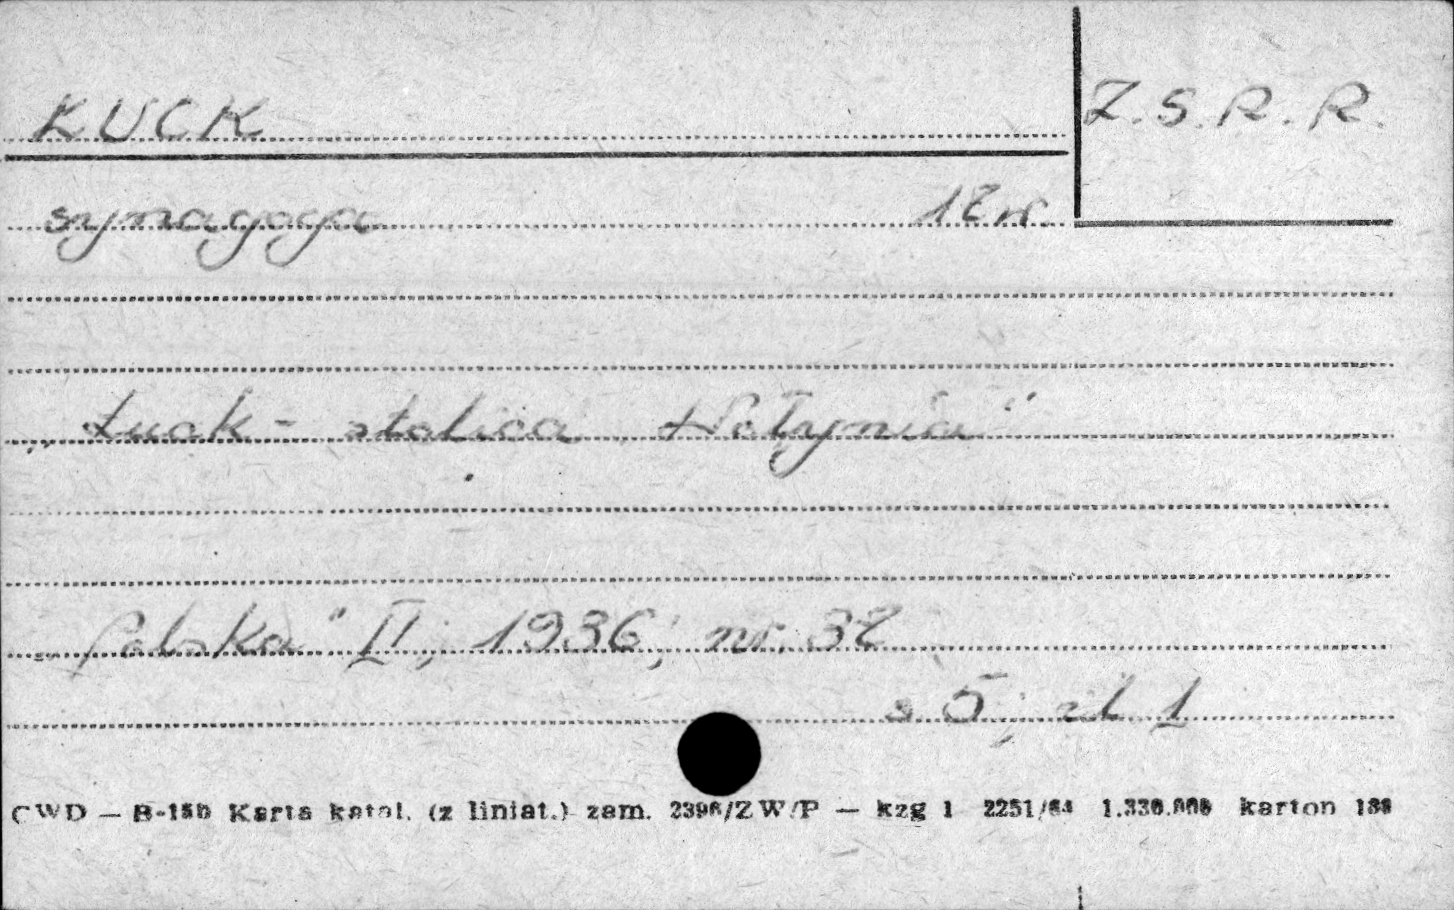 ŁUCK
Z.S.R.R.
synagoga 17 w.
„Łuck - stolica Wołynia"
„Polska" II; 1936; nr. 32
s 5; il 1
CWD — B-150 Karta katal. (z liniat.) zam. 2396/ZW/P — kzg 1 2251/64 1.330.000 karton